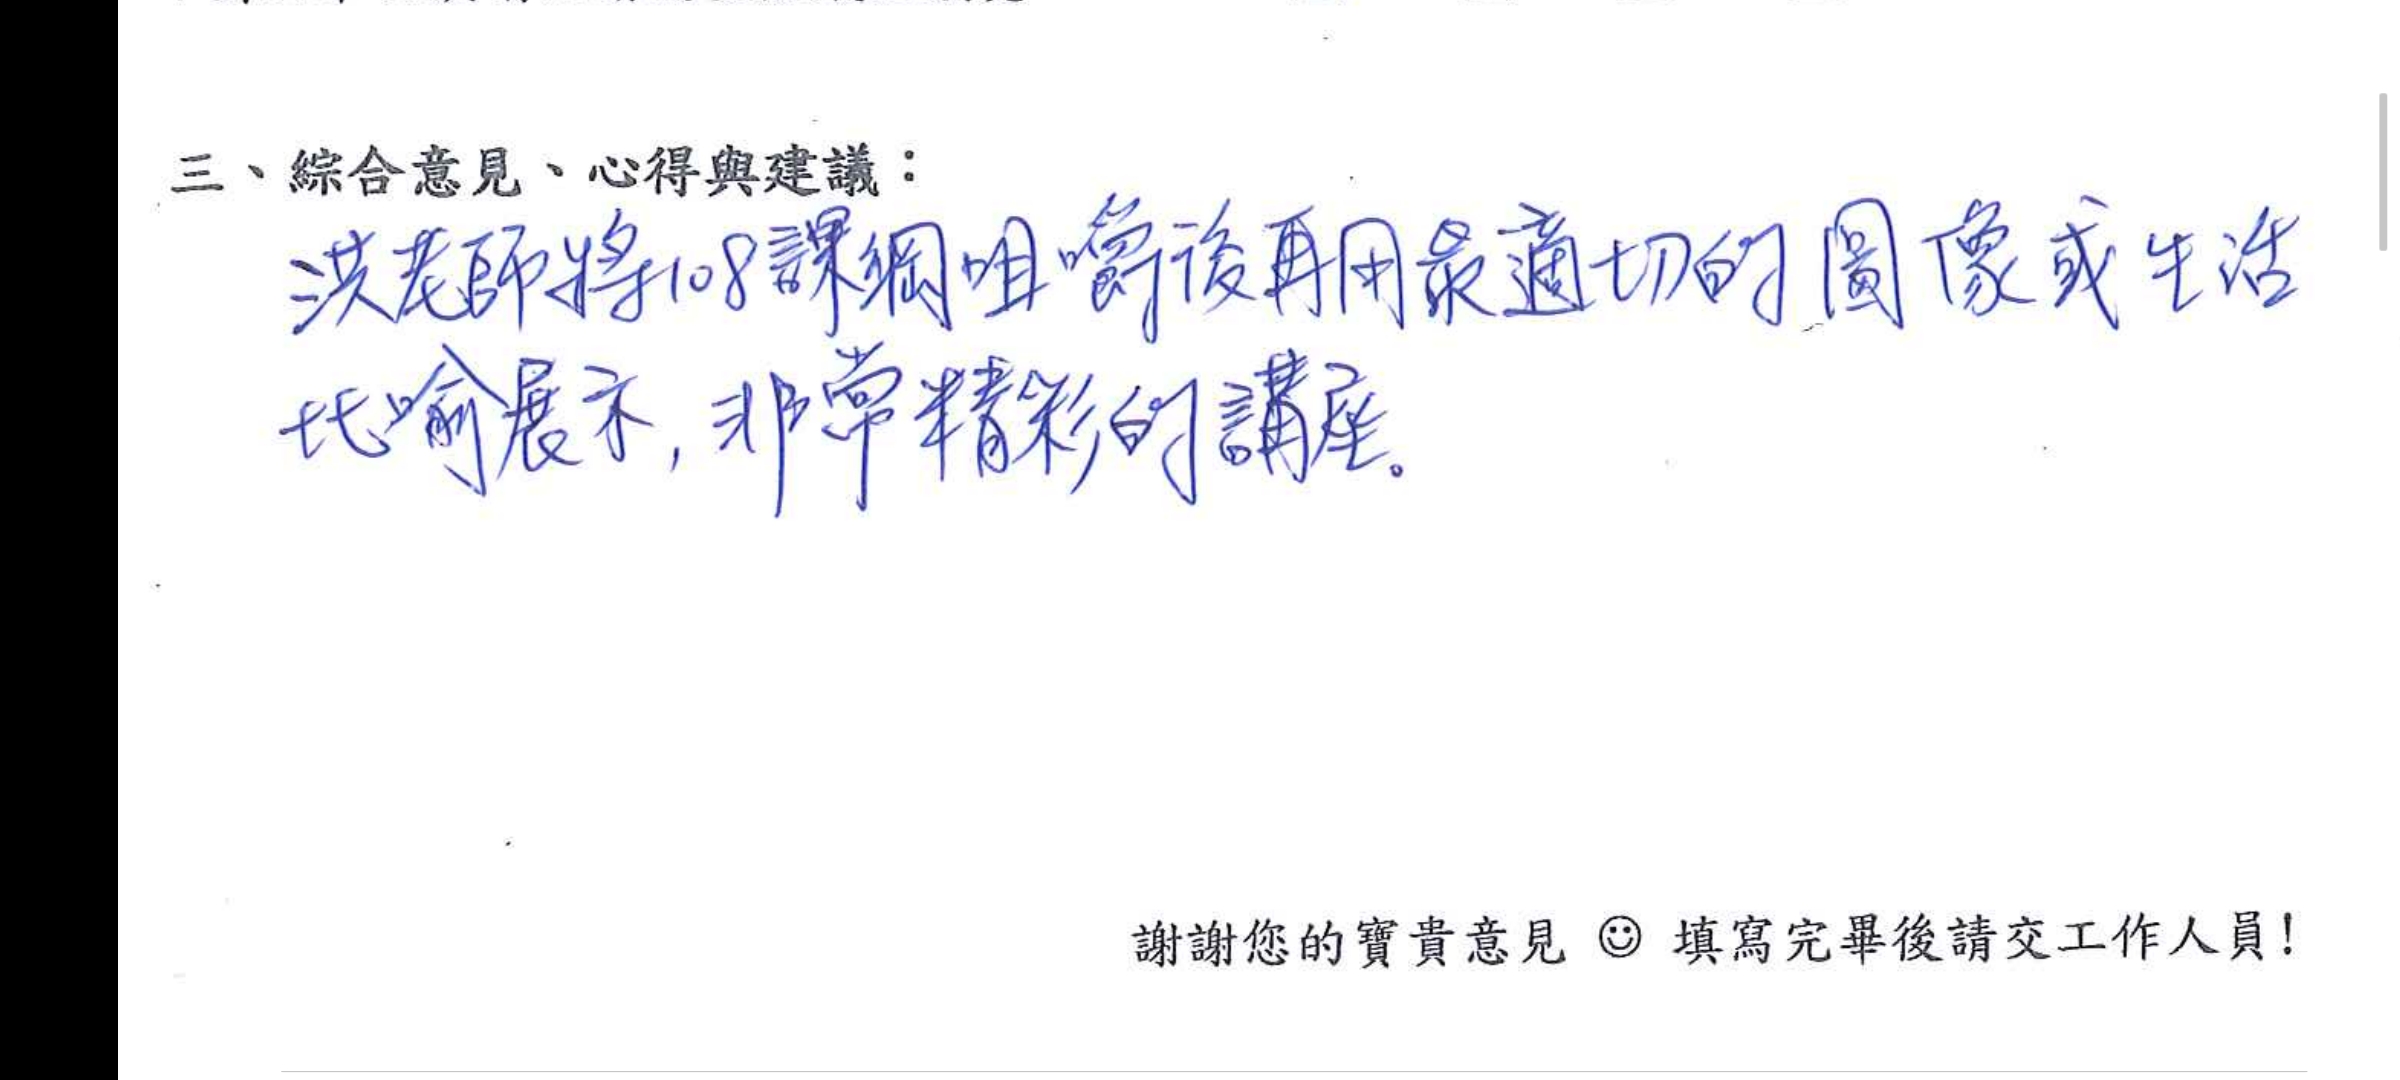 三、綜合意見、心得與建議：
洪老師將108課綱咀嚼後再用最適切的圖像或生活
比喻展示，非常精彩的講座。
謝謝您的寶貴意見 ☺ 填寫完畢後請交工作人員！